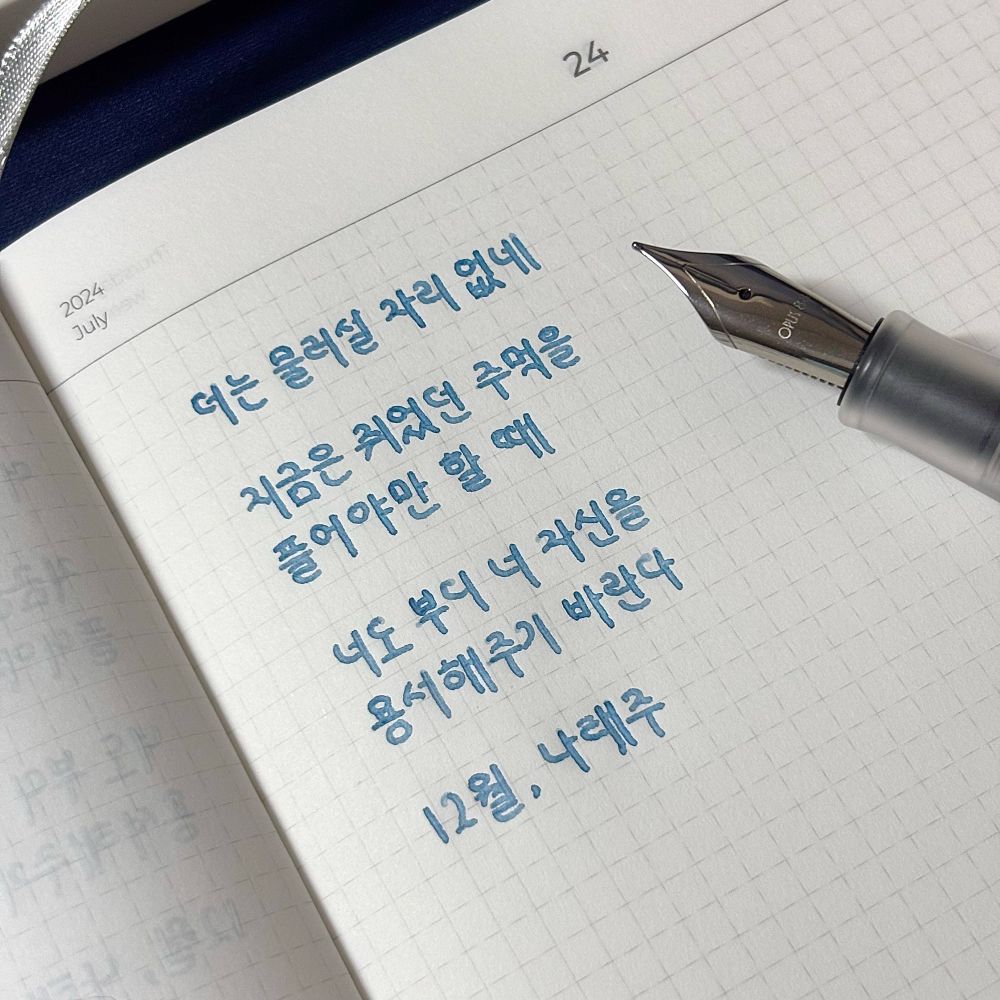 24
2024
July
더는 물러설 자리 없네
지금은 쥐었던 주먹을
풀어야만 할 때
너도 부디 너 자신을
용서해주기 바란다
12월, 나태주
OPUS 88